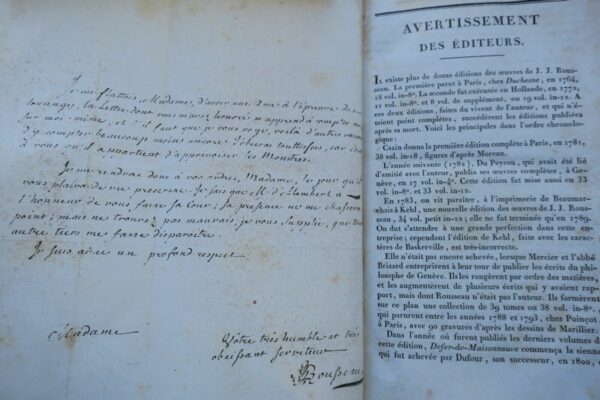 Je me flattois, Madame, d'avoir une Ame à l'épreuve des
louanges; la Lettre dont vous m'avez honoré m'apprend à compter moins
sur moi-même, et s'il faut que je vous voye, voilà d'autres raisons
d'y compter beaucoup moins encore. J'obeirai toutesfois, car c'est
à vous qu'il appartient d'apprivoiser les Monstres.
Je me rendrai donc à vos ordres, Madame, le jour qu'il
vous plaira de me prescrire. Je sais que M. d'Alembert a
l'honneur de vous faire sa Cour; sa présence ne me chassera
point; mais ne trouvez pas mauvais, je vous Supplie, que tout
autre tiers me fasse disparoitre.
Je suis avec un profond respect
Madame
Vôtre très humble et très
obeissant serviteur
JJRousseau
AVERTISSEMENT
DES ÉDITEURS.
IL existe plus de douze éditions des œuvres de J. J. Rous-
seau. La première parut à Paris, chez Duchesne, en 1764,
18 vol. in-8°. La seconde fut exécutée en Hollande, en 1772,
11 vol. in-8° et 8 vol. de supplément, ou 19 vol. in-12.
ces deux éditions, faites du vivant de l'auteur, et qui n'é-
toient point complètes, succédèrent les éditions publiées
après sa mort. Voici les principales dans l'ordre chronolo-
gique:
Cazin donna la première édition complète à Paris, en 1781,
38 vol. in-18, figures d'après Moreau.
L'année suivante (1782), Du Peyrou, qui avait été lié
d'amitié avec l'auteur, publia ses œuvres complètes, à Ge-
nève, en 17 vol. in-4°. Cette édition fut mise aussi en 33
vol. in-8° et 33 vol. in-12.
En 1783, on vit paraître, à l'imprimerie de Beaumar-
chais à Kehl, une nouvelle édition des œuvres de J. J. Rous-
seau, 34 vol. petit in-12; elle ne fut terminée qu'en 1789.
On dut s'attendre à une grande perfection dans cette en-
treprise; cependant l'édition de Kehl, faite avec les carac-
tères de Baskerville, est très-incorrecte.
Elle n'était pas encore achevée, lorsque Mercier et l'abbé
Brizard entreprirent à leur tour de publier les écrits du phi-
losophe de Genève. Ils les rangèrent par ordre des matières,
et les augmentèrent de plusieurs écrits qui y avaient rap-
port, mais dont Rousseau n'était pas l'auteur. Ils formèrent
sur ce plan une collection de 39 tomes ou 38 vol. in-8°,
qui parurent entre les années 1788 et 1793, chez Poinçot
à Paris, avec 90 gravures d'après les dessins de Marillier.
Dans l'année où furent publiés les derniers volumes de
cette édition, Defer-de-Maisonneuve commença la sienne
qui fut achevée par Dufour, son successeur, en 1800,